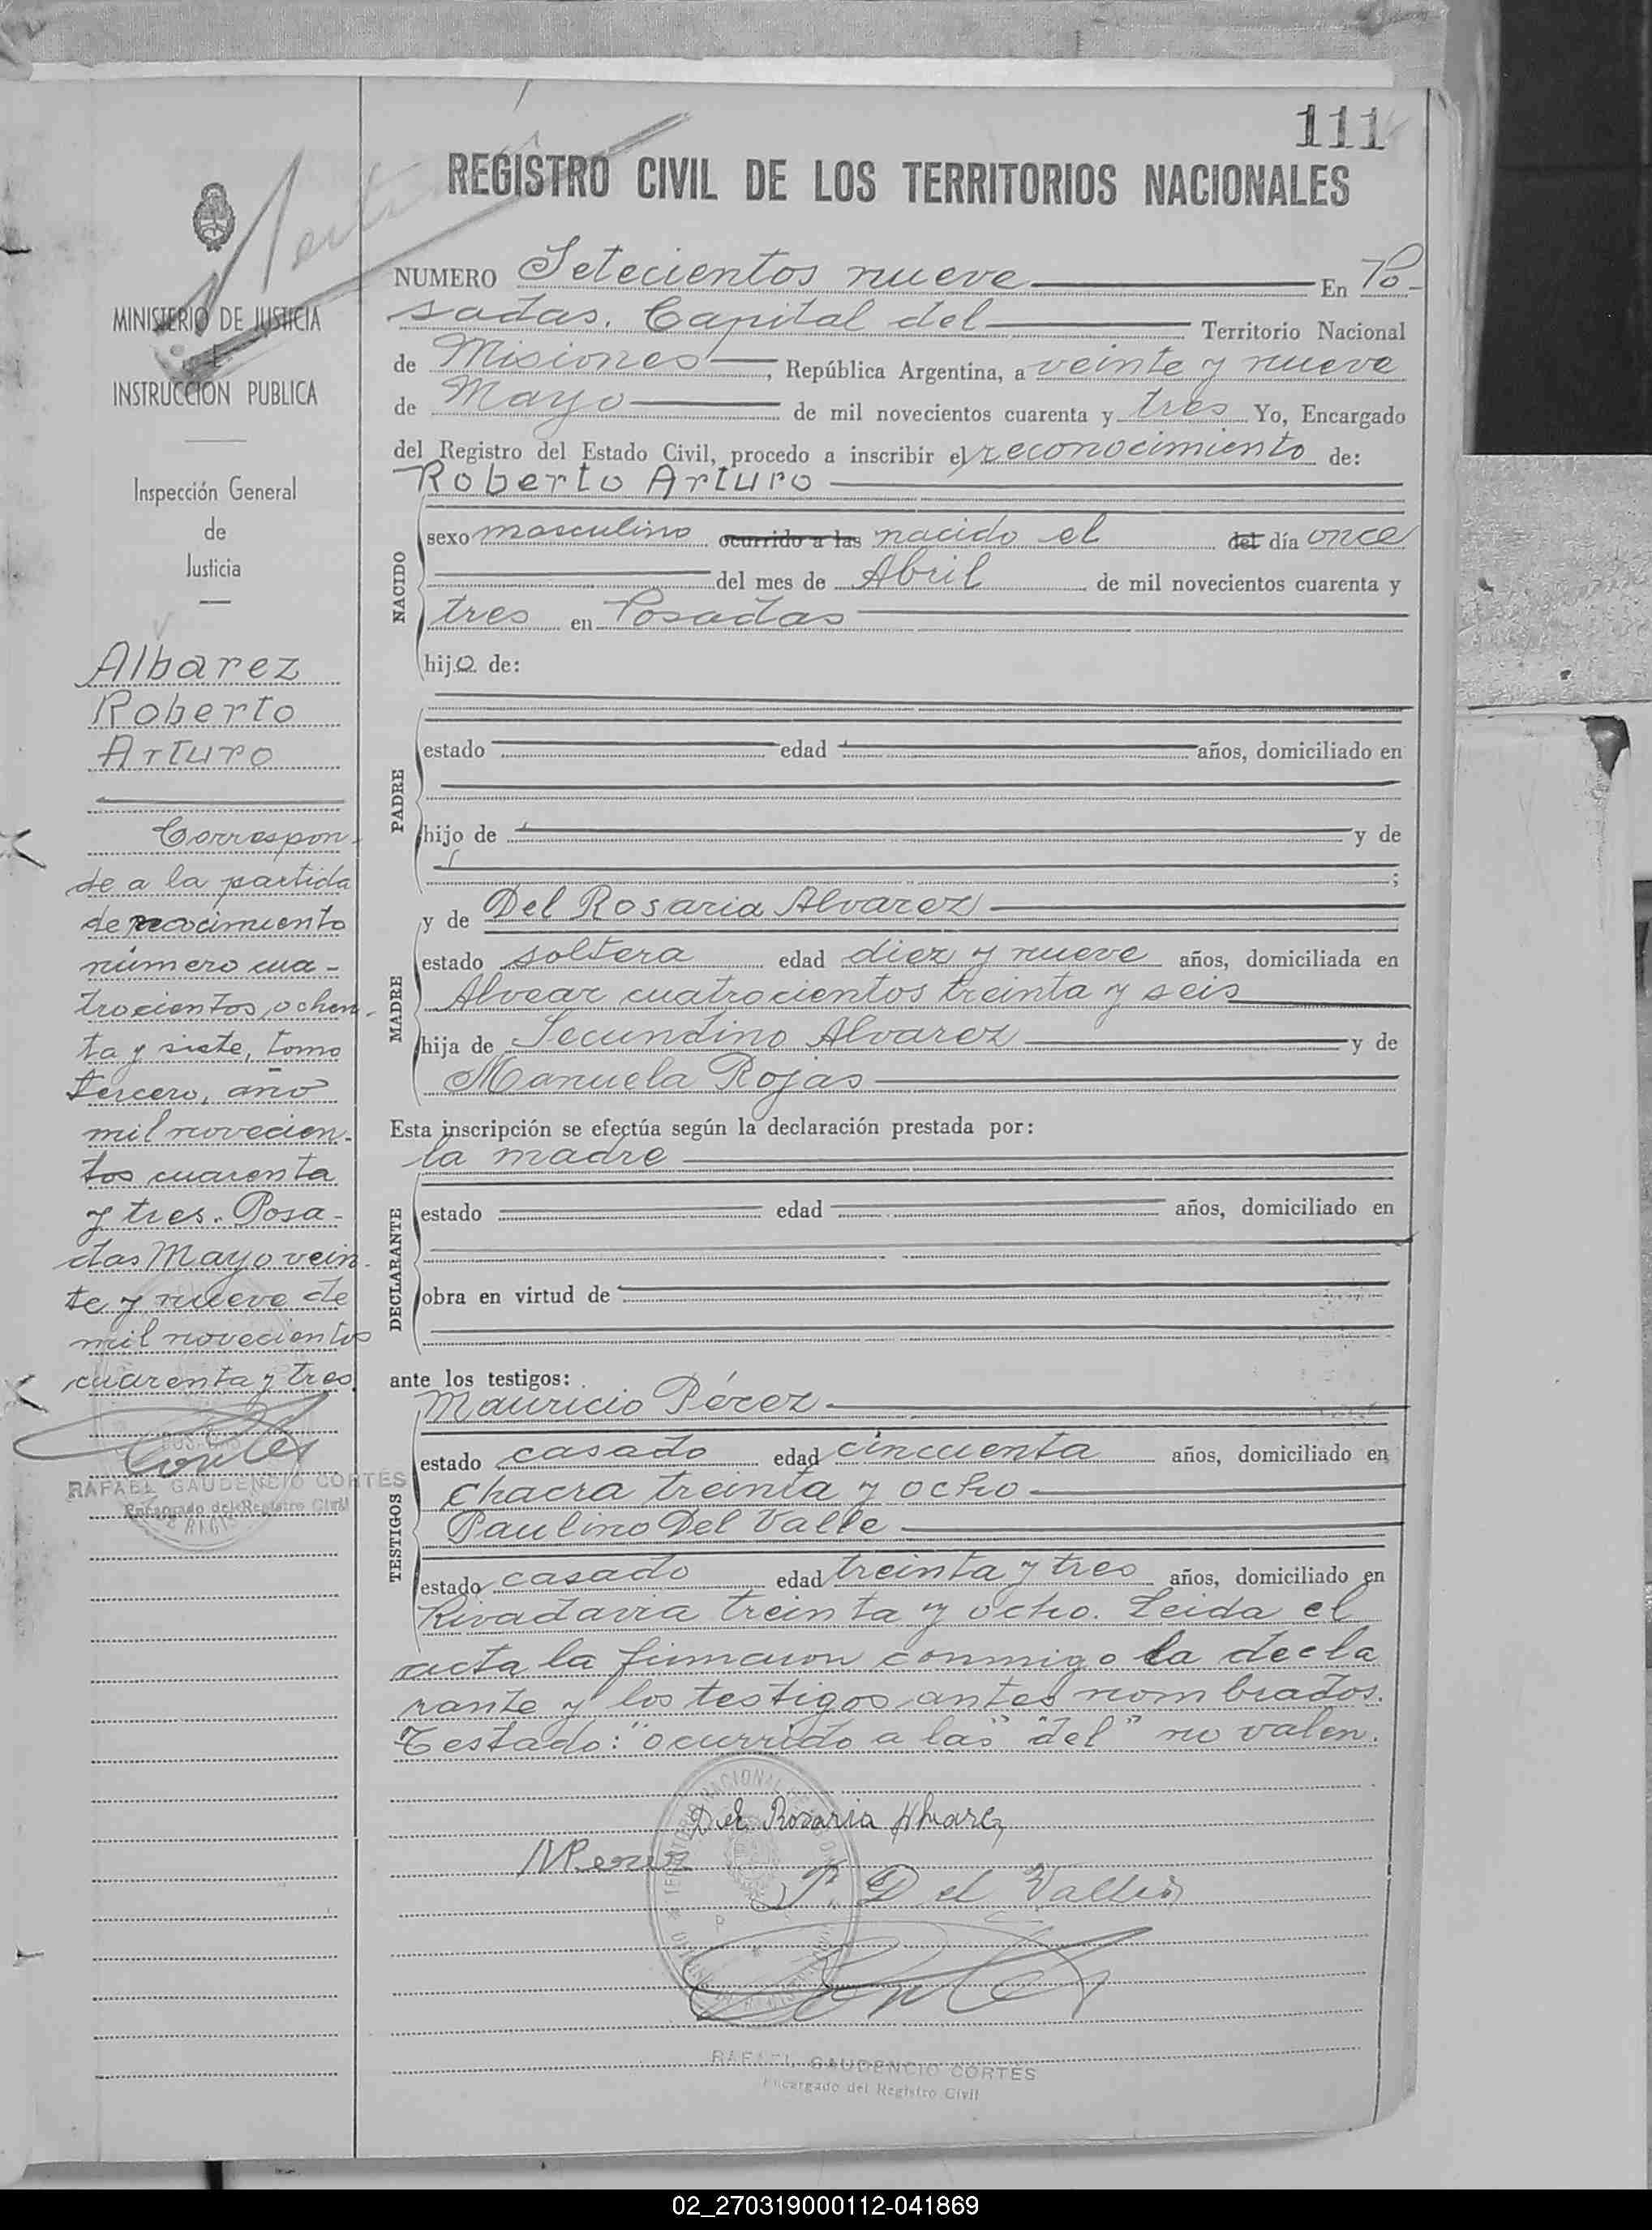 111
REGISTRO CIVIL DE LOS TERRITORIOS NACIONALES
MINISTERIO DE JUSTICIA
E
INSTRUCCIÓN PUBLICA
Inspección General
de
Justicia
Albarez
Roberto
Arturo
Correspon-
de a la partida
de nacimiento
número cua-
trocientos, ochen-
ta y siete, tomo
tercero, año
mil novecien-
tos cuarenta
y tres. Posa-
das Mayo vein-
te y nueve de
mil novecientos
cuarenta y tres.
Cortes
RAFAEL GAUDENCIO CORTÉS
Encargado del Registro Civil
NUMERO Setecientos nueve En Po-
sadas. Capital del Territorio Nacional
de Misiones, República Argentina, a veinte y nueve
de Mayo de mil novecientos cuarenta y tres Yo, Encargado
del Registro del Estado Civil, procedo a inscribir el reconocimiento de:
Roberto Arturo
NACIDO
sexo masculino ocurrido a las nacido el del día once
del mes de Abril de mil novecientos cuarenta y
tres en Posadas
hijo de:
PADRE
estado edad años, domiciliado en
hijo de y de
;
MADRE
y de Del Rosaria Alvarez
estado soltera edad diez y nueve años, domiciliada en
Alvear cuatrocientos treinta y seis
hija de Secundino Alvarez y de
Manuela Rojas
Esta inscripción se efectúa según la declaración prestada por:
la madre
DECLARANTE
estado edad años, domiciliado en
obra en virtud de
ante los testigos:
TESTIGOS
Mauricio Pérez
estado casado edad cincuenta años, domiciliado en
Chacra treinta y ocho
Paulino Del Valle
estado casado edad treinta y tres años, domiciliado en
Rivadavia treinta y ocho. Leida el
acta la firmaron conmigo la decla
rante y los testigos antes nombrados.
Testado: "ocurrido a las" "del" no valen.
Del Rosaria Alvarez
MPerez
P. Del Valle
RAFAEL GAUDENCIO CORTÉS
Encargado del Registro Civil
02_270319000112-041869